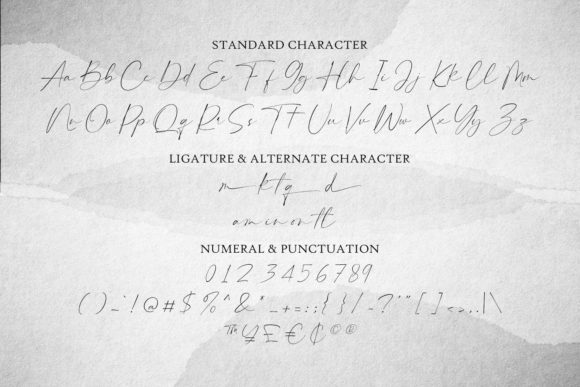 STANDARD CHARACTER
Aa Bb Cc Dd Ee Ff Gg Hh Ii Jj Kk Ll Mm
Nn Oo Pp Qq Rr Ss Tt Uu Vv Ww Xx Yy Zz
LIGATURE & ALTERNATE CHARACTER
m k t q d
am in on tt
NUMERAL & PUNCTUATION
0 1 2 3 4 5 6 7 8 9
( ) - ` ! @ # $ % ^ & * _ + = : ; { } / - ? ' " [ ] < > , . | \
™ ¥ £ € ₵ © ®